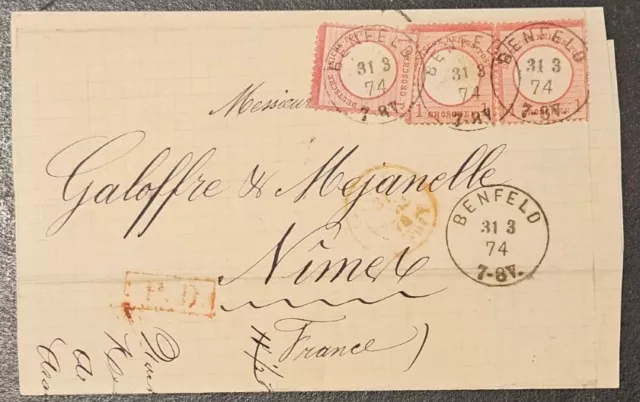 BENFELD
31 3
74
7-8V.
BENFELD
31 3
74
7-8V.
BENFELD
31 3
74
7-8V.
DEUTSCHE REICHS
GROSCHEN
1 GROSCHEN
Messieurs
Galoffre & Mejanelle
Nîmes
(France)
BENFELD
31 3
74
7-8V.
P.D.